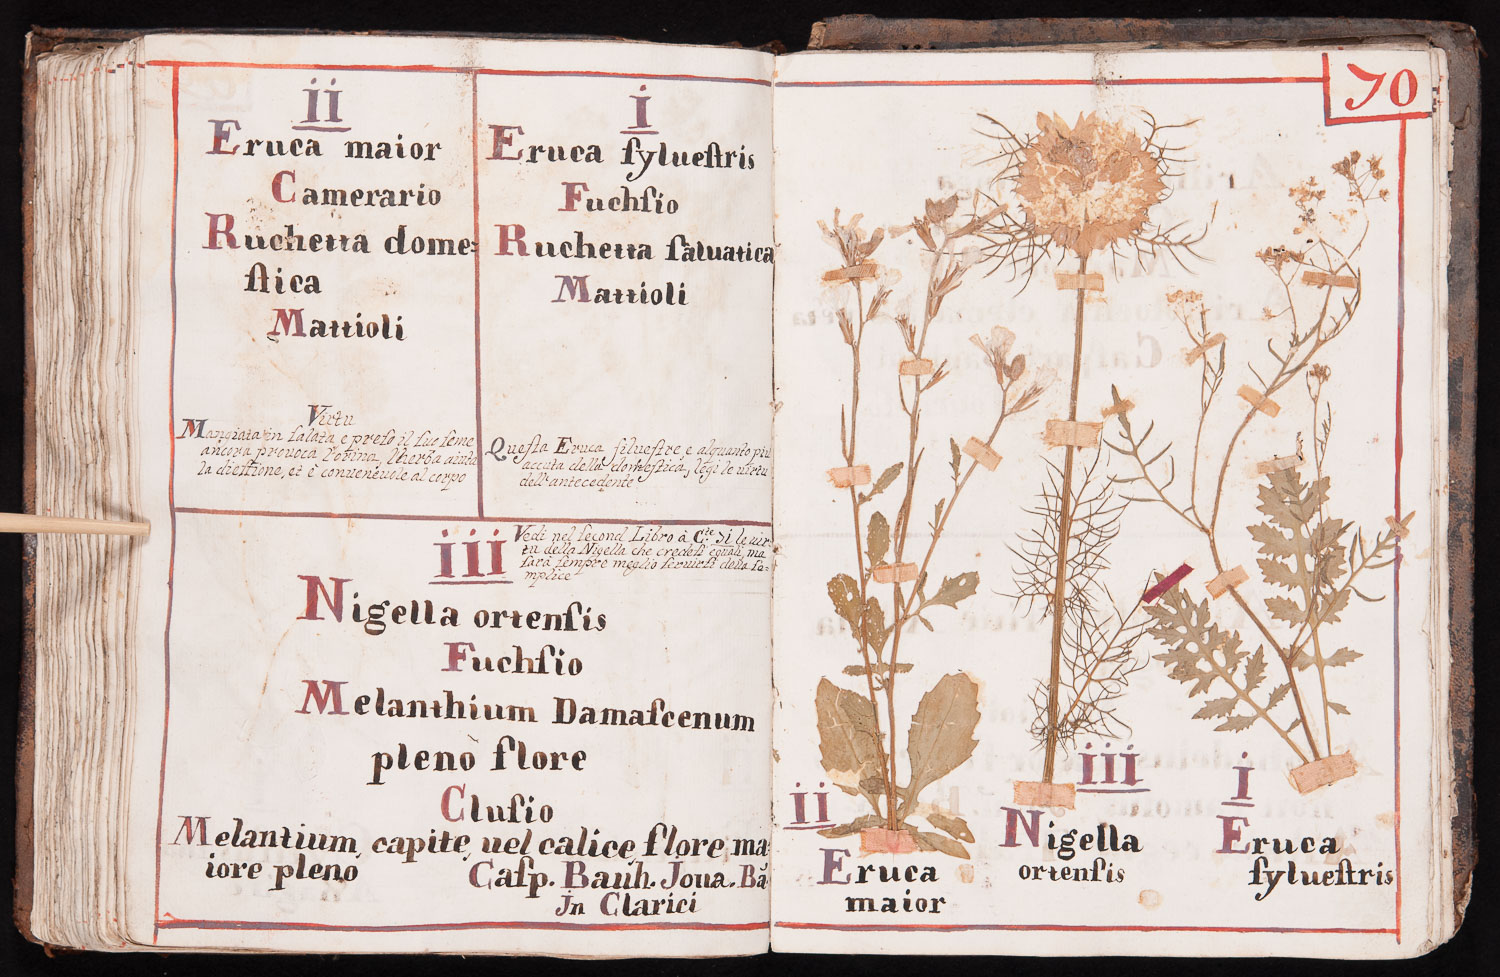 ii
Eruca maior
Camerario
Ruchetta dome=
ſtica
Mattioli
Virtu
Mangiata in ſalata, e preſo il ſuo ſeme
ancora prouoca l'orina, l'herba aiuta
la digeſtione, et è conueneuole al corpo
i
Eruca ſylueſtris
Fuchſio
Ruchetta ſaluatica
Mattioli
Queſta Eruca ſilueſtre, e alquanto più
accuta della domeſtica, legi le uirtu
dell'antecedente
iii
Vedi nel ſecond Libro à Cte 51 le uir=
tu della Nigella che credeſi eguali, ma
ſara ſempre meglio ſeruirſi della ſe=
mplice
Nigella ortenſis
Fuchſio
Melanthium Damaſcenum
pleno flore
Cluſio
Melantium, capite, uel calice flore ma=
iore pleno
Caſp. Bauh. Joua. Ba
Jn Clarici
70
ii
Eruca
maior
iii
Nigella
ortenſis
i
Eruca
ſylueſtris